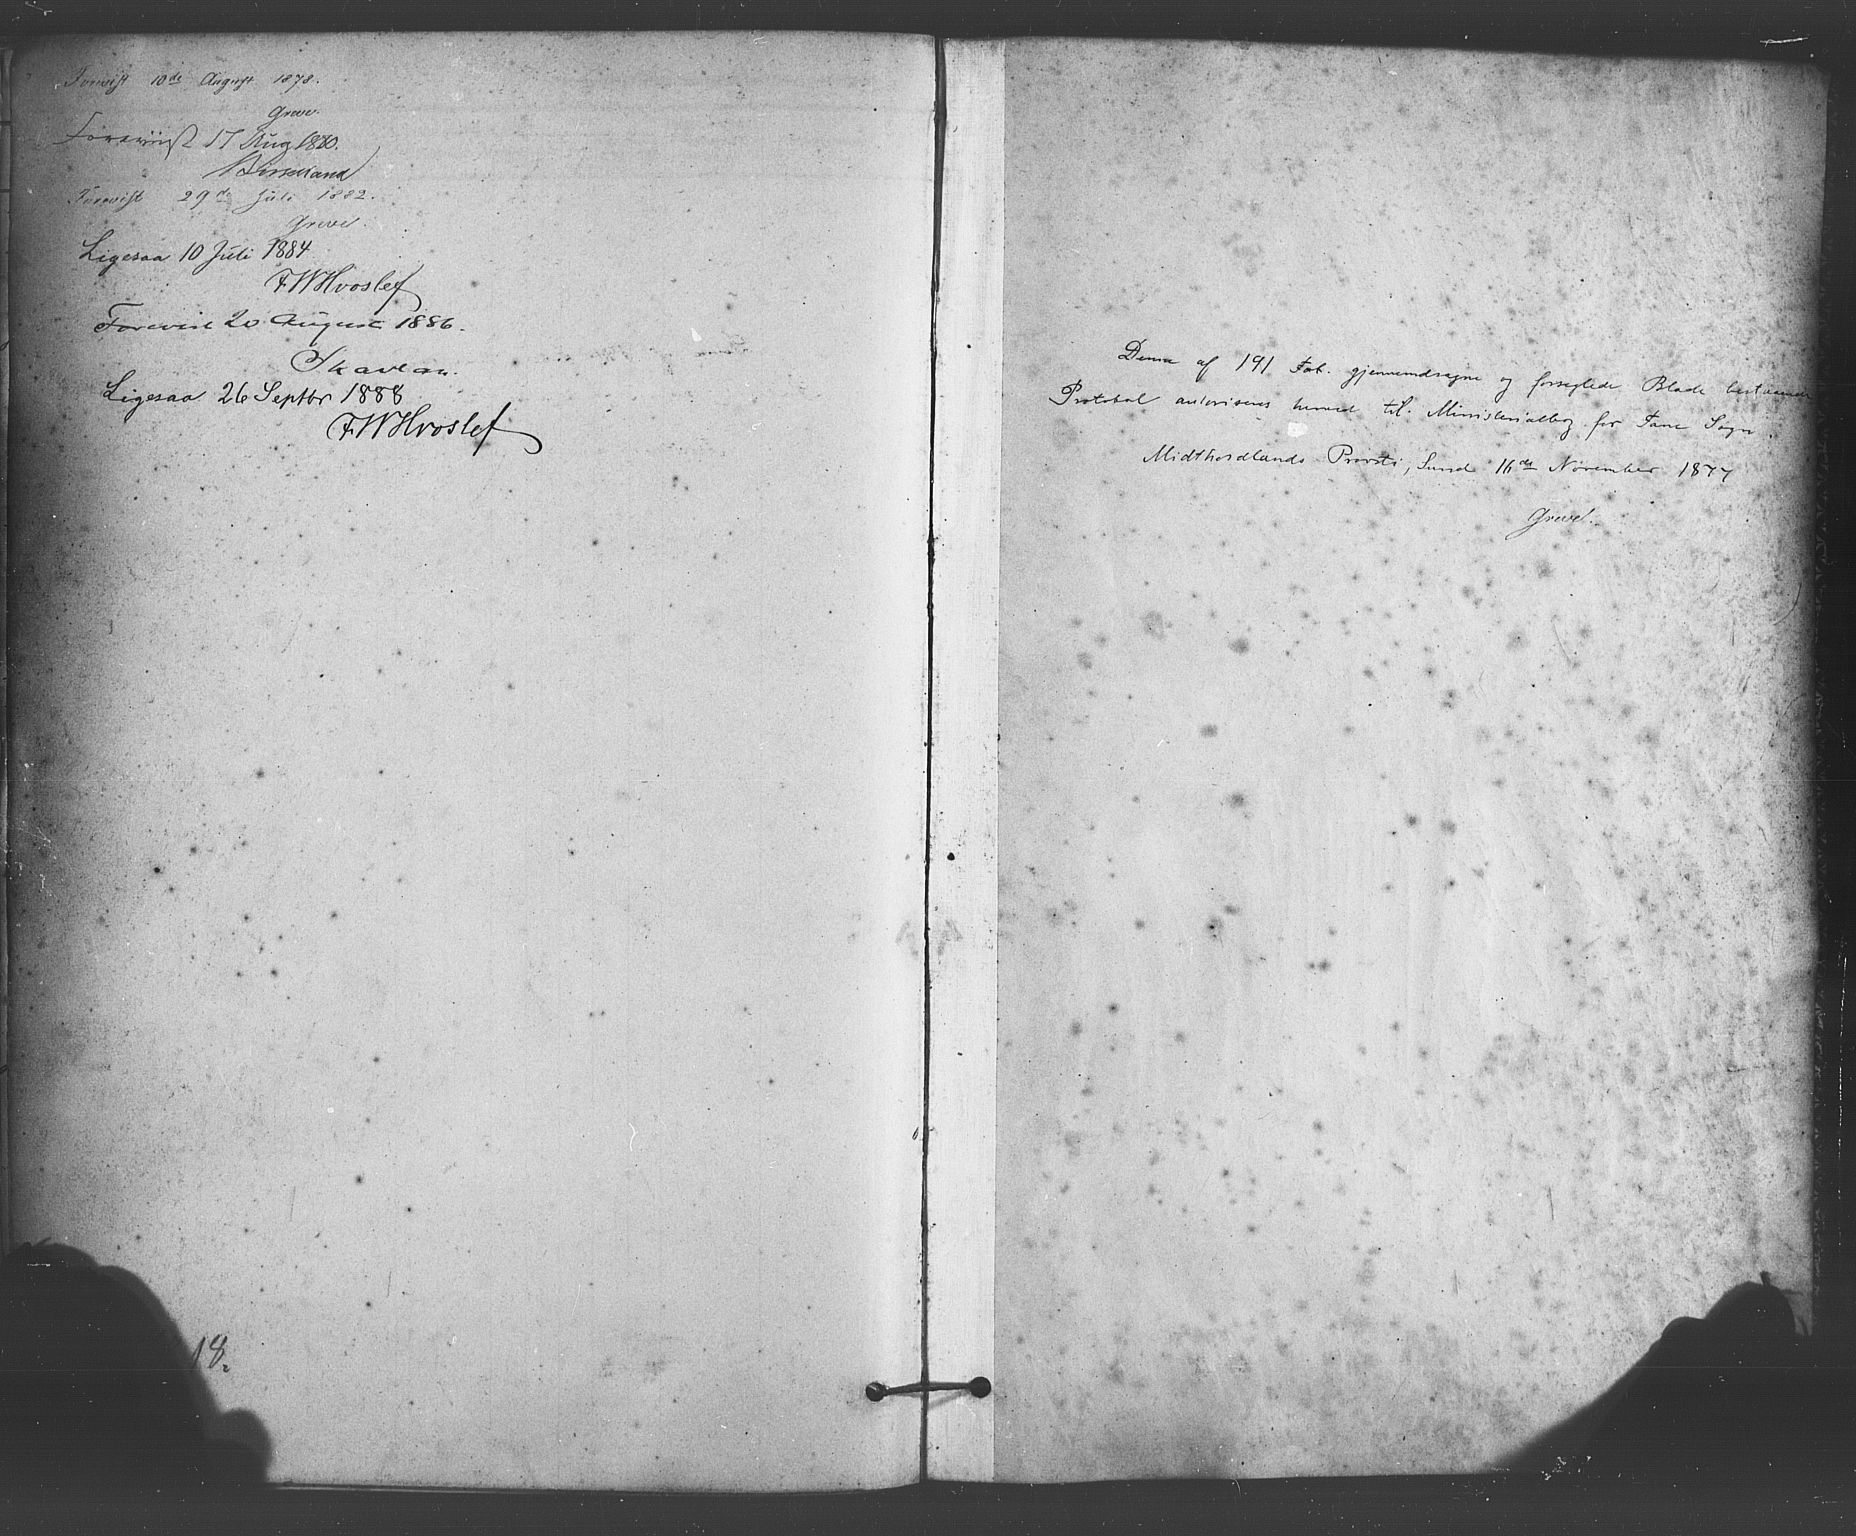 Forevist 10de August 1878.
Greve.
Foreviist 17 Aug 1880.
Birkeland
Forevist 29de Juli 1882.
Greve.
Ligesaa 10 Juli 1884
FWHvoslef
Forevist 20 August 1886.
Skavlan.
Ligesaa 26 Septbr 1888
FWHvoslef
18.
Denne af 191 Fol. gjennemdragne og forseglede Blade bestaaende
Protokol autoriseres herved til Ministerialbog for Fane Sogn.
Midthordlands Provsti, Sund 16de November 1877
Greve.